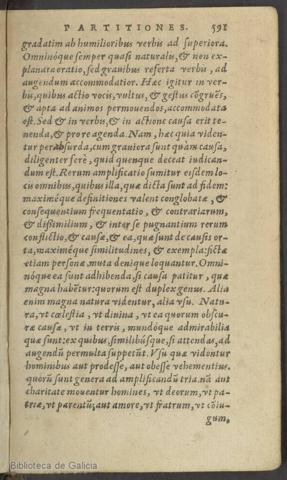 PARTITIONES. 591
gradatim ab humilioribus verbis ad superiora.
Omninóque semper quasi naturalis, & non ex-
planata oratio, sed grauibus referta verbis, ad
augendum accommodatior. Hæc igitur in ver-
bis, quibus actio vocis, vultus, & gestus cõgruẽs,
& apta ad animos permouendos, accommodata
est. Sed & in verbis, & in actione causa erit te-
nenda, & pro re agenda. Nam, hæc quia viden-
tur perabsurda, cum grauiora sunt quàm causa,
diligenter serè, quid quenque deceat iudican-
dum est. Rerum amplificatio sumitur eisdem lo-
cis omnibus, quibus illa, quæ dicta sunt ad fidem:
maximéque definitiones valent conglobatæ, &
consequentium frequentatio, & contrariarum,
& dissimilium, & inter se pugnantium rerum
conflictio, & causæ, & ea, quæ sunt de causis or-
ta, maximéque similitudines, & exempla: fictæ
etiam personæ, muta denique loquantur. Omni-
nóque ea sunt adhibenda, si causa patitur, quæ
magna habẽtur: quorum est duplex genus. Alia
enim magna natura videntur, alia vsu. Natu-
ra, vt cælestia, vt diuina, vt ea quorum obscu-
ræ causæ, vt in terris, mundóque admirabilia
quæ sunt: ex quibus, similibúsque, si attendas, ad
augendũ permulta suppetũt. Vsu quæ videntur
hominibus aut prodesse, aut obesse vehementius.
quorũ sunt genera ad amplificandũ tria. nã aut
charitate mouentur homines, vt deorum, vt pa-
triæ, vt parentũ: aut amore, vt fratrum, vt cõiu-
gum,
Biblioteca de Galicia